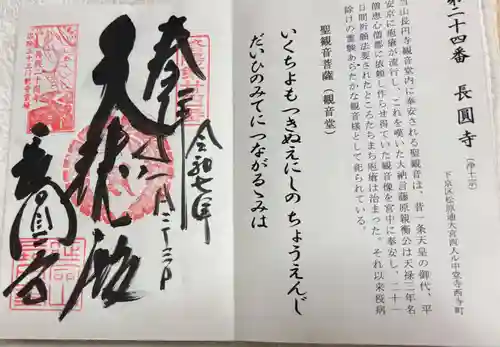 第二十四番 長圓寺
(浄土宗)
下京区松原通大宮西入ル中堂寺西寺町
当山長円寺観音堂内に奉安される聖観音は、昔一条天皇の御代、平
安京に疱瘡が流行し、これを嘆いた大納言藤原親衡公は天禄三年名
僧恵心僧都に依頼し作らせ得ていた観音像を宮中に奉安し、二十一
日間祈願法要されたところたちまち疱瘡は治まった。それ以来疫病
除けの霊験あらたかな観音様として祀られている。
聖観音菩薩(観音堂)
いくちよもつきぬえにしの ちょうえんじ
だいひのみてにつながるこみは
奉拝
令和七年
一月二十二日
大悲殿
長圓寺